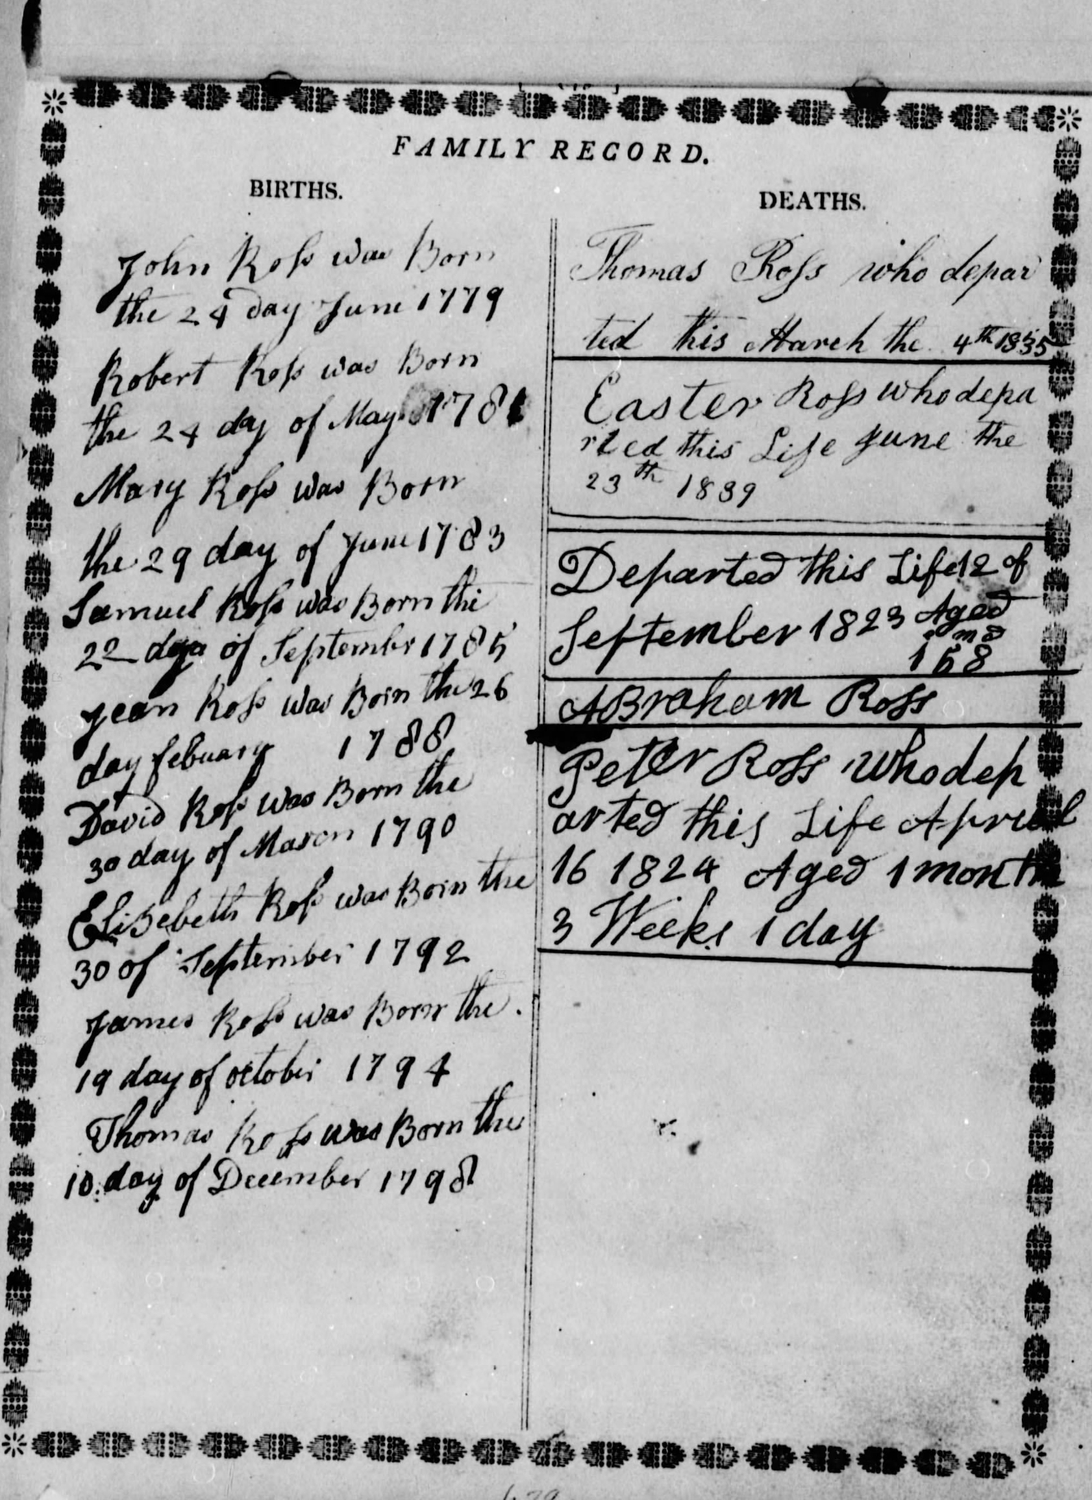 FAMILY RECORD.
BIRTHS.
John Ross was Born
the 24 day June 1779
Robert Ross was Born
the 24 day of May 1781
Mary Ross was Born
the 29 day of June 1783
Samuel Ross was Born the
22 day of September 1785
Jean Ross was Born the 26
day febuary 1788
David Ross was Born the
30 day of March 1790
Elisebeth Ross was Born the
30 of September 1792
James Ross was Born the
19 day of october 1794
Thomas Ross was Born the
10 day of December 1798
DEATHS.
Thomas Ross who depar
ted this March the 4th 1835
Easter Ross who depa
rted this Life June the
23th 1839
Departed this Life 12 of
September 1823 Aged
ABraham Ross
Peter Ross who dep
arted this Life Apreal
16 1824 Aged 1 month
3 Weeks 1 day